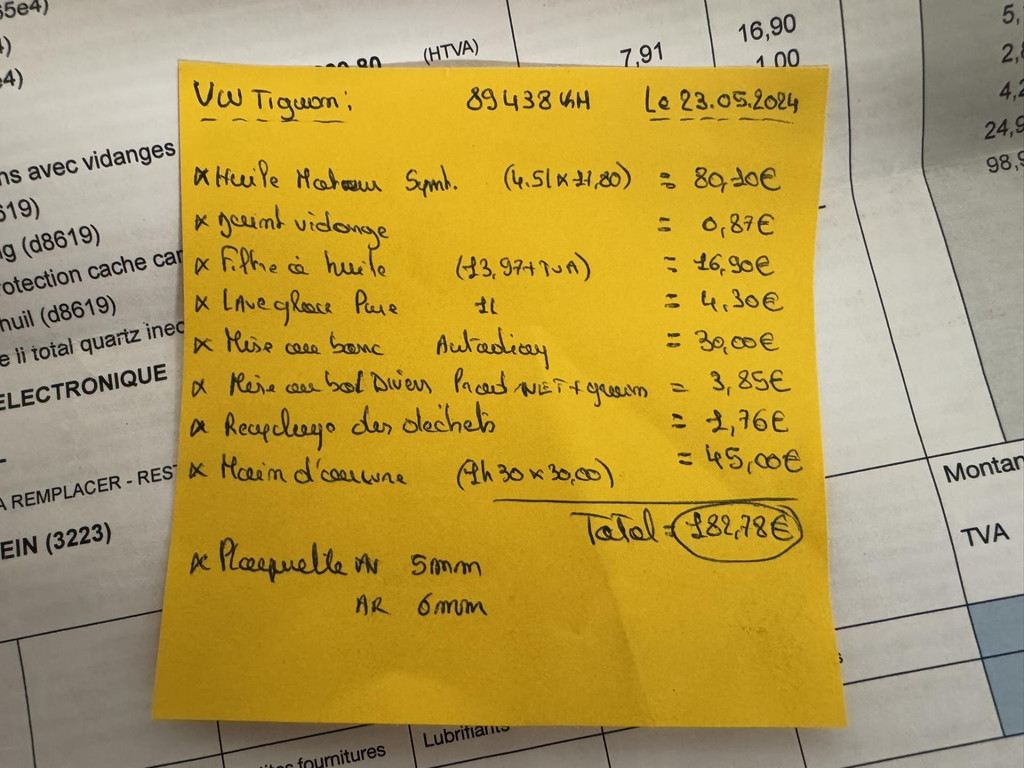 65e4)
4)
e4)
(HTVA)
7,91
16,90
1,00
5,
2,8
4,2
24,9
98,9
VW Tiguan : 89438 KM Le 23.05.2024
× Huile Moteur Synt. (4.5l × 17,80) = 80,10€
× joint vidange = 0,87€
× Filtre à huile (13,97+TVA) = 16,90€
× Lave glace Pure 1L = 4,30€
× Mise au banc Autodiag = 30,00€
× Mise au bol Divers Prod NET + = 3,85€
× Recyclage des déchets = 1,76€
× Main d'œuvre (1h30 × 30,00) = 45,00€
Total = 182,78€
× Plaquette AV 5mm
AR 6mm
ns avec vidanges
619)
g (d8619)
rotection cache car
huil (d8619)
e ii total quartz ineo
ELECTRONIQUE
A REMPLACER - REST
EIN (3223)
Montan
TVA
tites fournitures
Lubrifiants